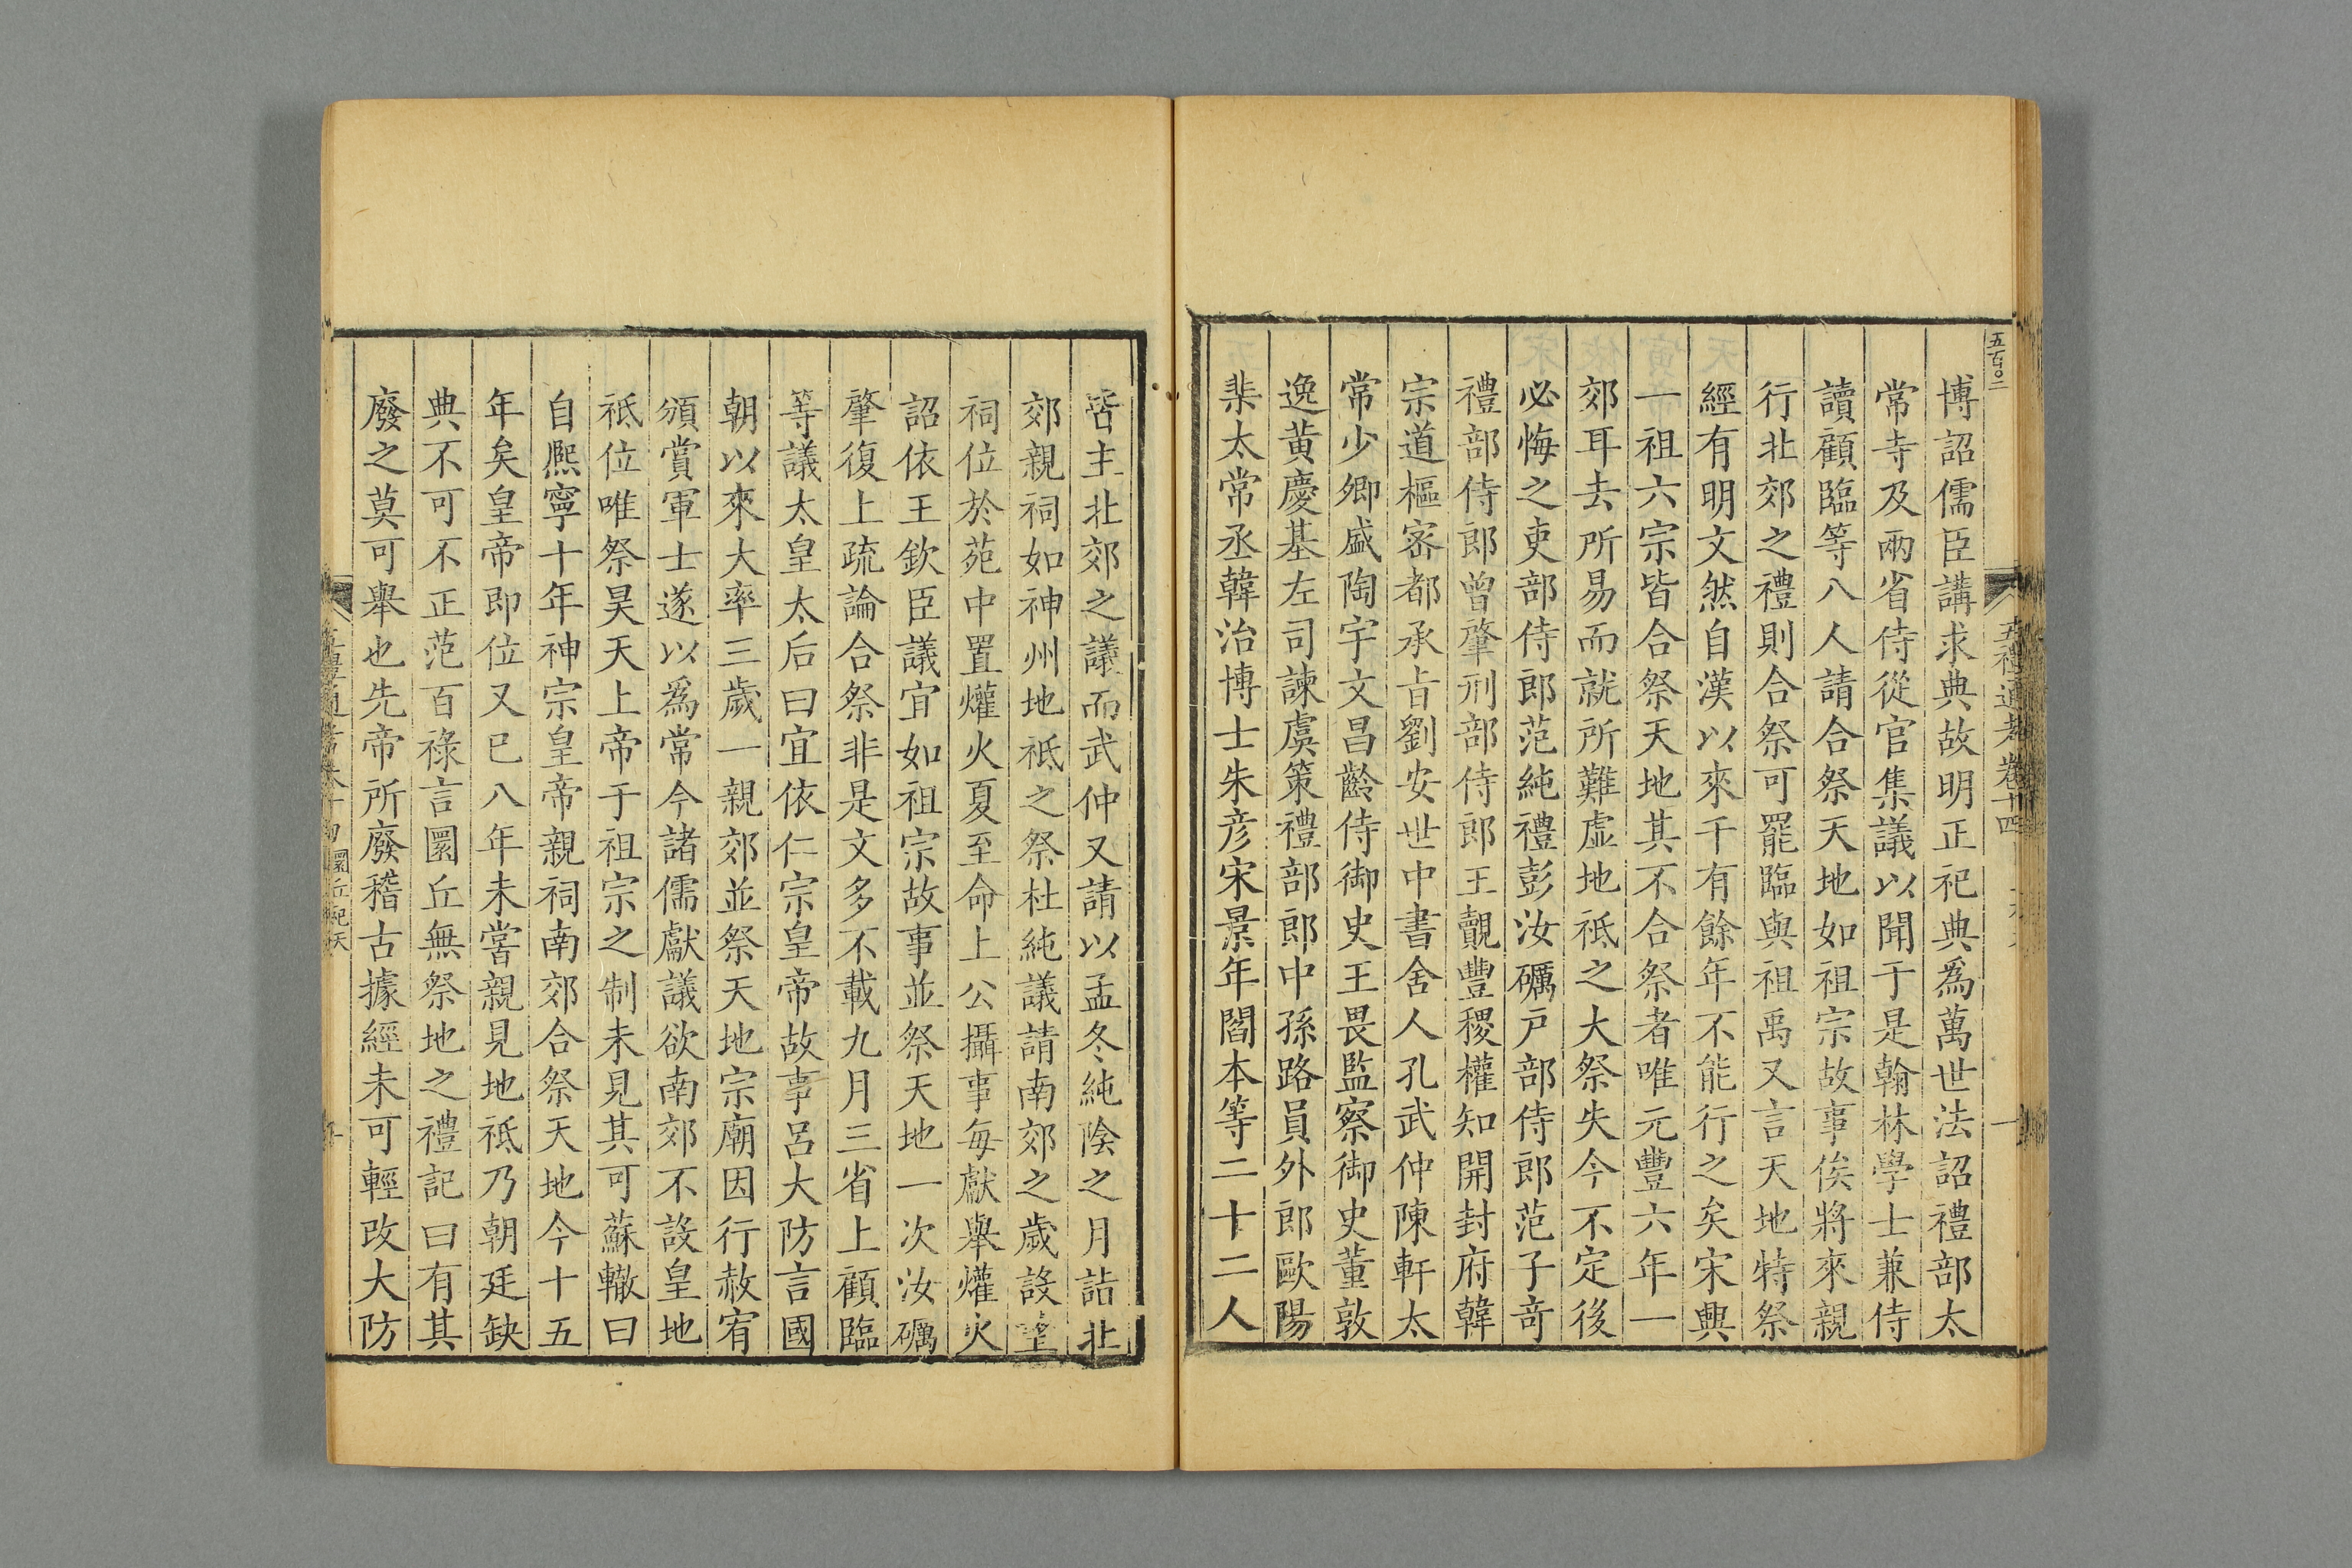 五百○二
博詔儒臣講求典故明正祀典爲萬世法詔禮部太
常寺及兩省侍從官集議以聞于是翰林學士兼侍
讀顧臨等八人請合祭天地如祖宗故事俟將來親
行北郊之禮則合祭可罷臨與祖禹又言天地特祭
經有明文然自漢以來千有餘年不能行之矣宋興
一祖六宗皆合祭天地其不合祭者唯元豐六年一
郊耳去所易而就所難虛地祗之大祭失今不定後
必悔之吏部侍郎范純禮彭汝礪戸部侍郎范子奇
禮部侍郎曾肇刑部侍郎王覿豐稷權知開封府韓
宗道樞密都承旨劉安世中書舍人孔武仲陳軒太
常少卿盛陶宇文昌齡侍御史王畏監察御史董敦
逸黃慶基左司諫虞策禮部郎中孫路員外郎歐陽
棐太常丞韓治博士朱彥宋景年閻本等二十二人
皆主北郊之議而武仲又請以孟冬純陰之月詣北
郊親祠如神州地祗之祭杜純議請南郊之歲設望
祠位於苑中置爟火夏至命上公攝事每獻舉爟火
詔依王欽臣議宜如祖宗故事並祭天地一次汝礪
肇復上疏論合祭非是文多不載九月三省上顧臨
等議太皇太后曰宜依仁宗皇帝故事呂大防言國
朝以來大率三歲一親郊並祭天地宗廟因行赦宥
頒賞軍士遂以爲常今諸儒獻議欲南郊不設皇地
祗位唯祭昊天上帝于祖宗之制未見其可蘇轍曰
自熙寧十年神宗皇帝親祠南郊合祭天地今十五
年矣皇帝即位又已八年未嘗親見地祗乃朝廷缺
典不可不正范百祿言圜丘無祭地之禮記曰有其
廢之莫可舉也先帝所廢稽古據經未可輕改大防